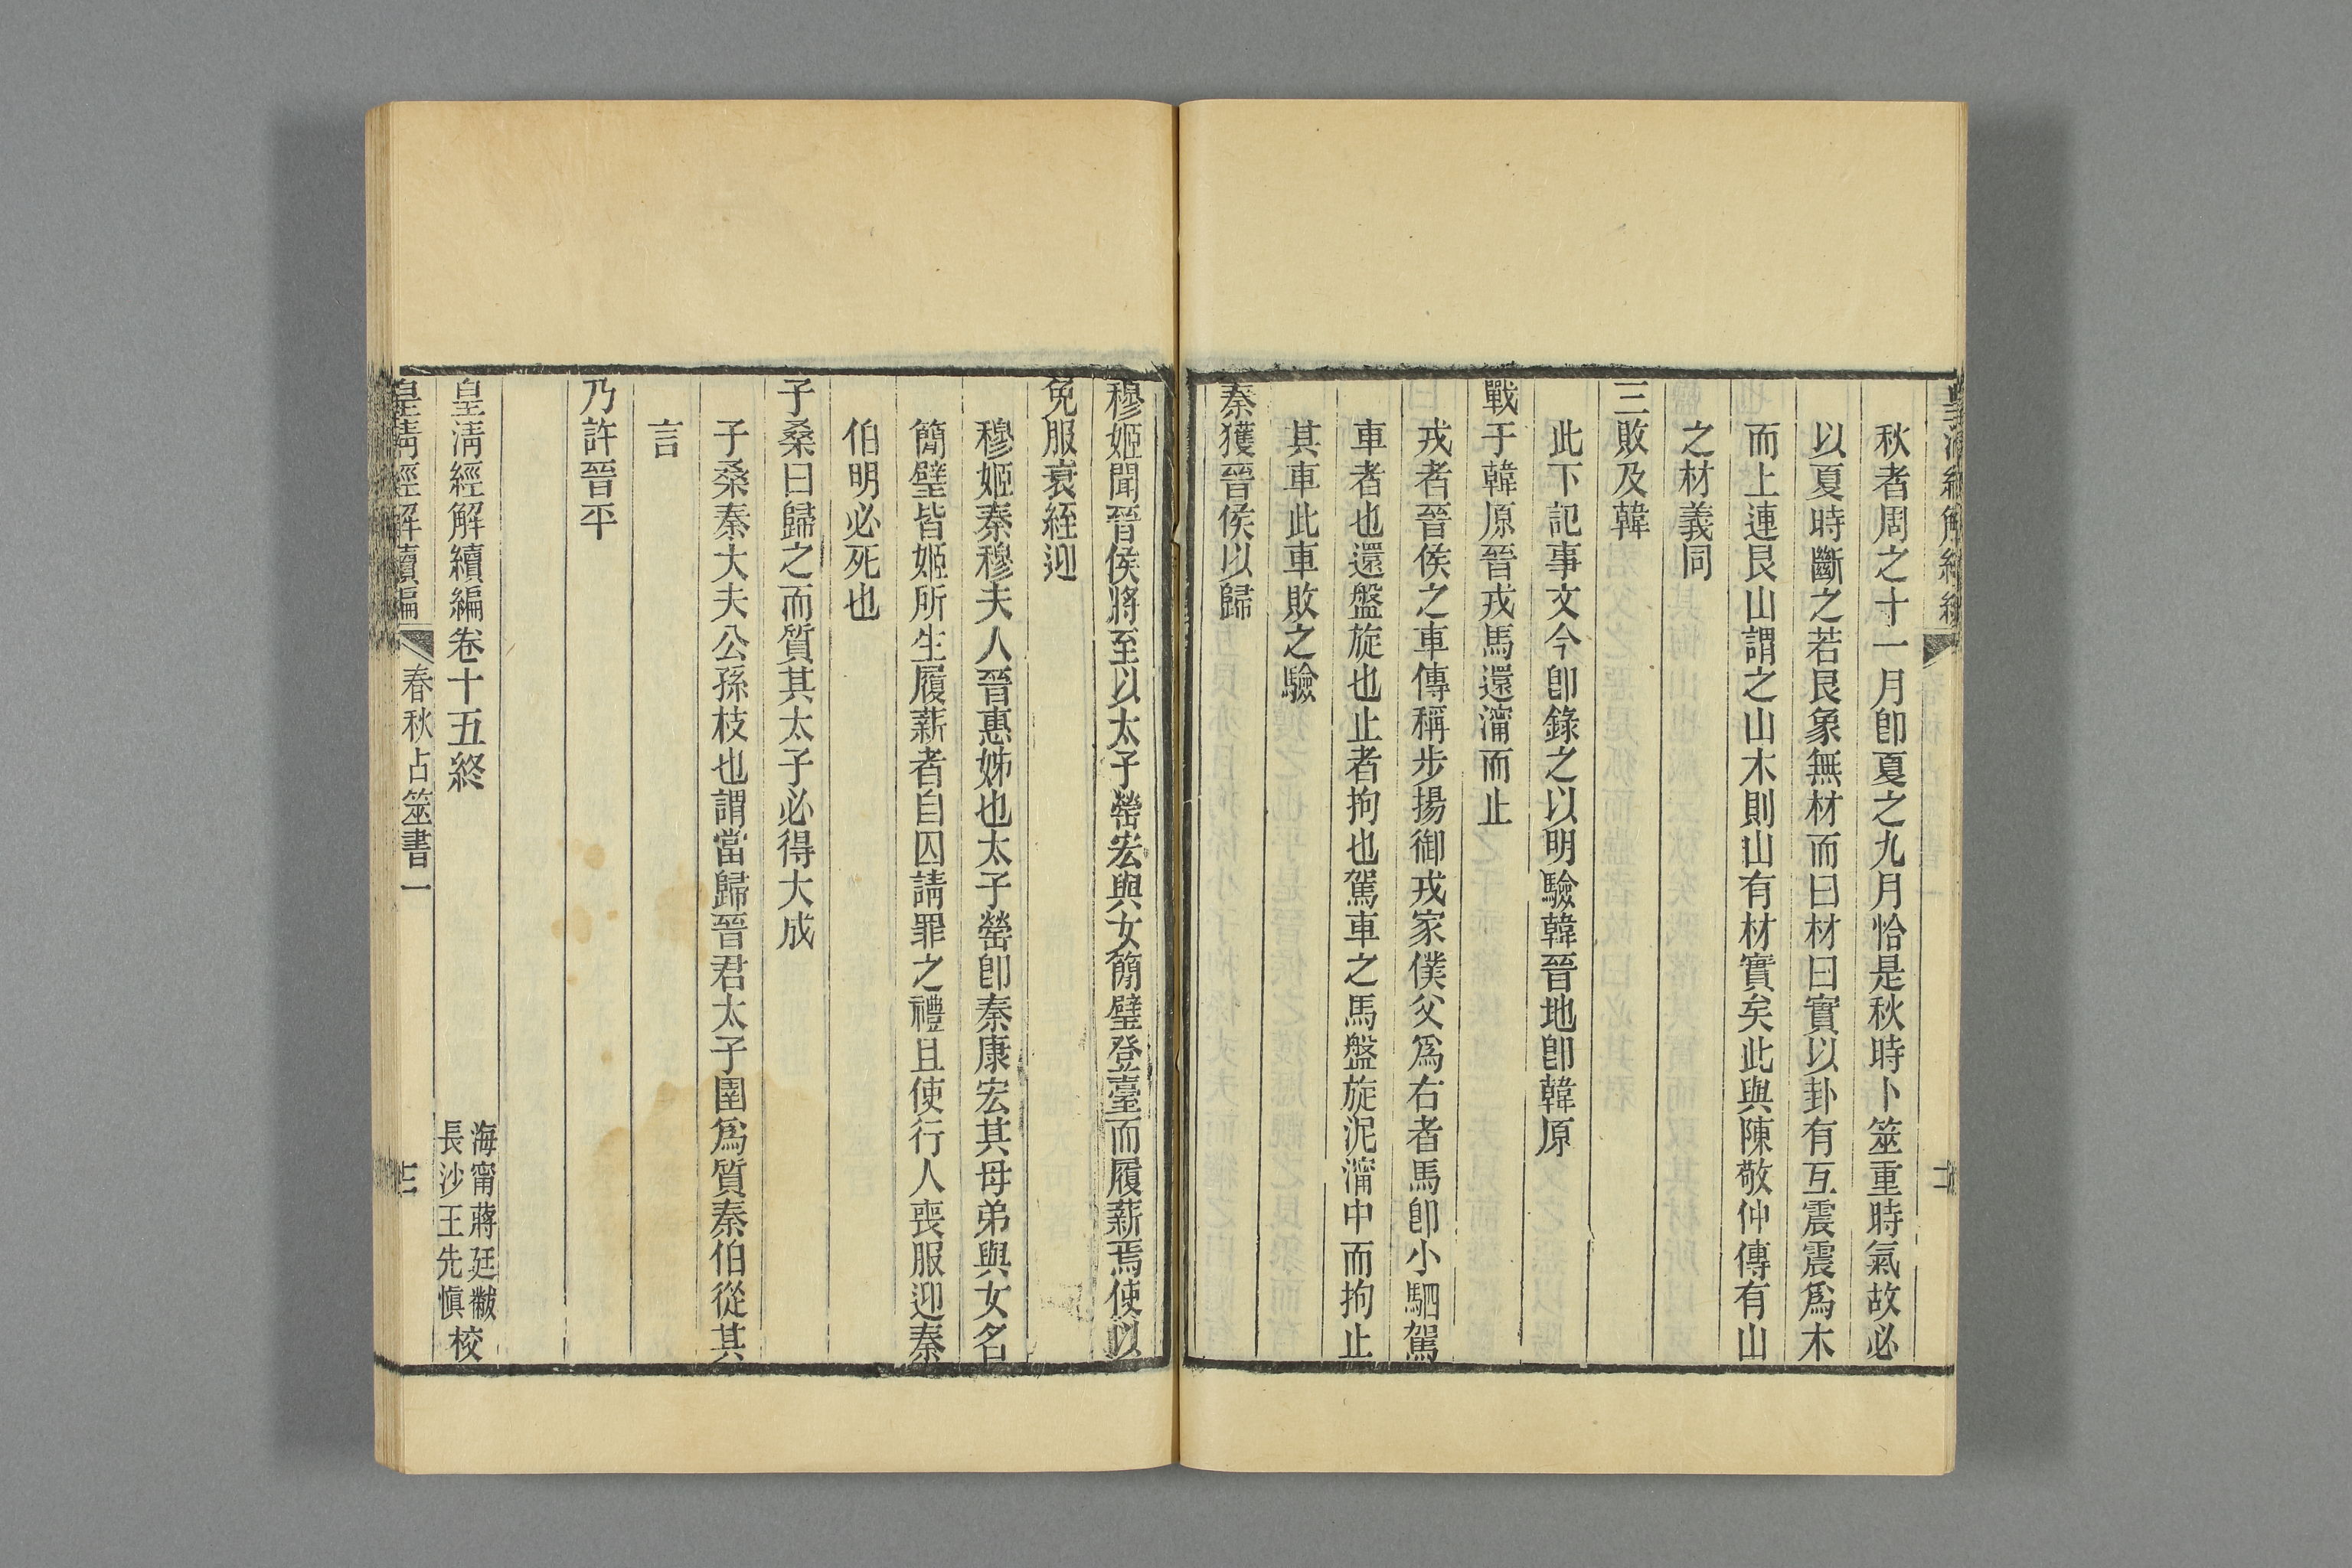 秋者周之十一月卽夏之九月恰是秋時卜筮重時氣故必
以夏時斷之若艮象無材而曰材曰實以卦有互震震爲木
而上連艮山謂之山木則山有材實矣此與陳敬仲傳有山
之材義同
三敗及韓
此下記事文今卽錄之以明驗韓晉地卽韓原
戰于韓原晉戎馬還濘而止
戎者晉侯之車傳稱步揚御戎家僕父爲右者馬卽小駟駕
車者也還盤旋也止者拘也駕車之馬盤旋泥濘中而拘止
其車此車敗之驗
秦獲晉侯以歸
穆姬聞晉侯將至以太子罃宏與女簡璧登臺而履薪焉使以
免服衰絰迎
穆姬秦穆夫人晉惠姊也太子罃卽秦康宏其母弟與女名
簡璧皆姬所生履薪者自囚請罪之禮且使行人喪服迎秦
伯明必死也
子桑曰歸之而質其太子必得大成
子桑秦大夫公孫枝也謂當歸晉君太子圉爲質秦伯從其
言
乃許晉平
皇淸經解續編卷十五終
海甯蔣廷黻
長沙王先愼
校
皇淸經解續編
春秋占筮書一